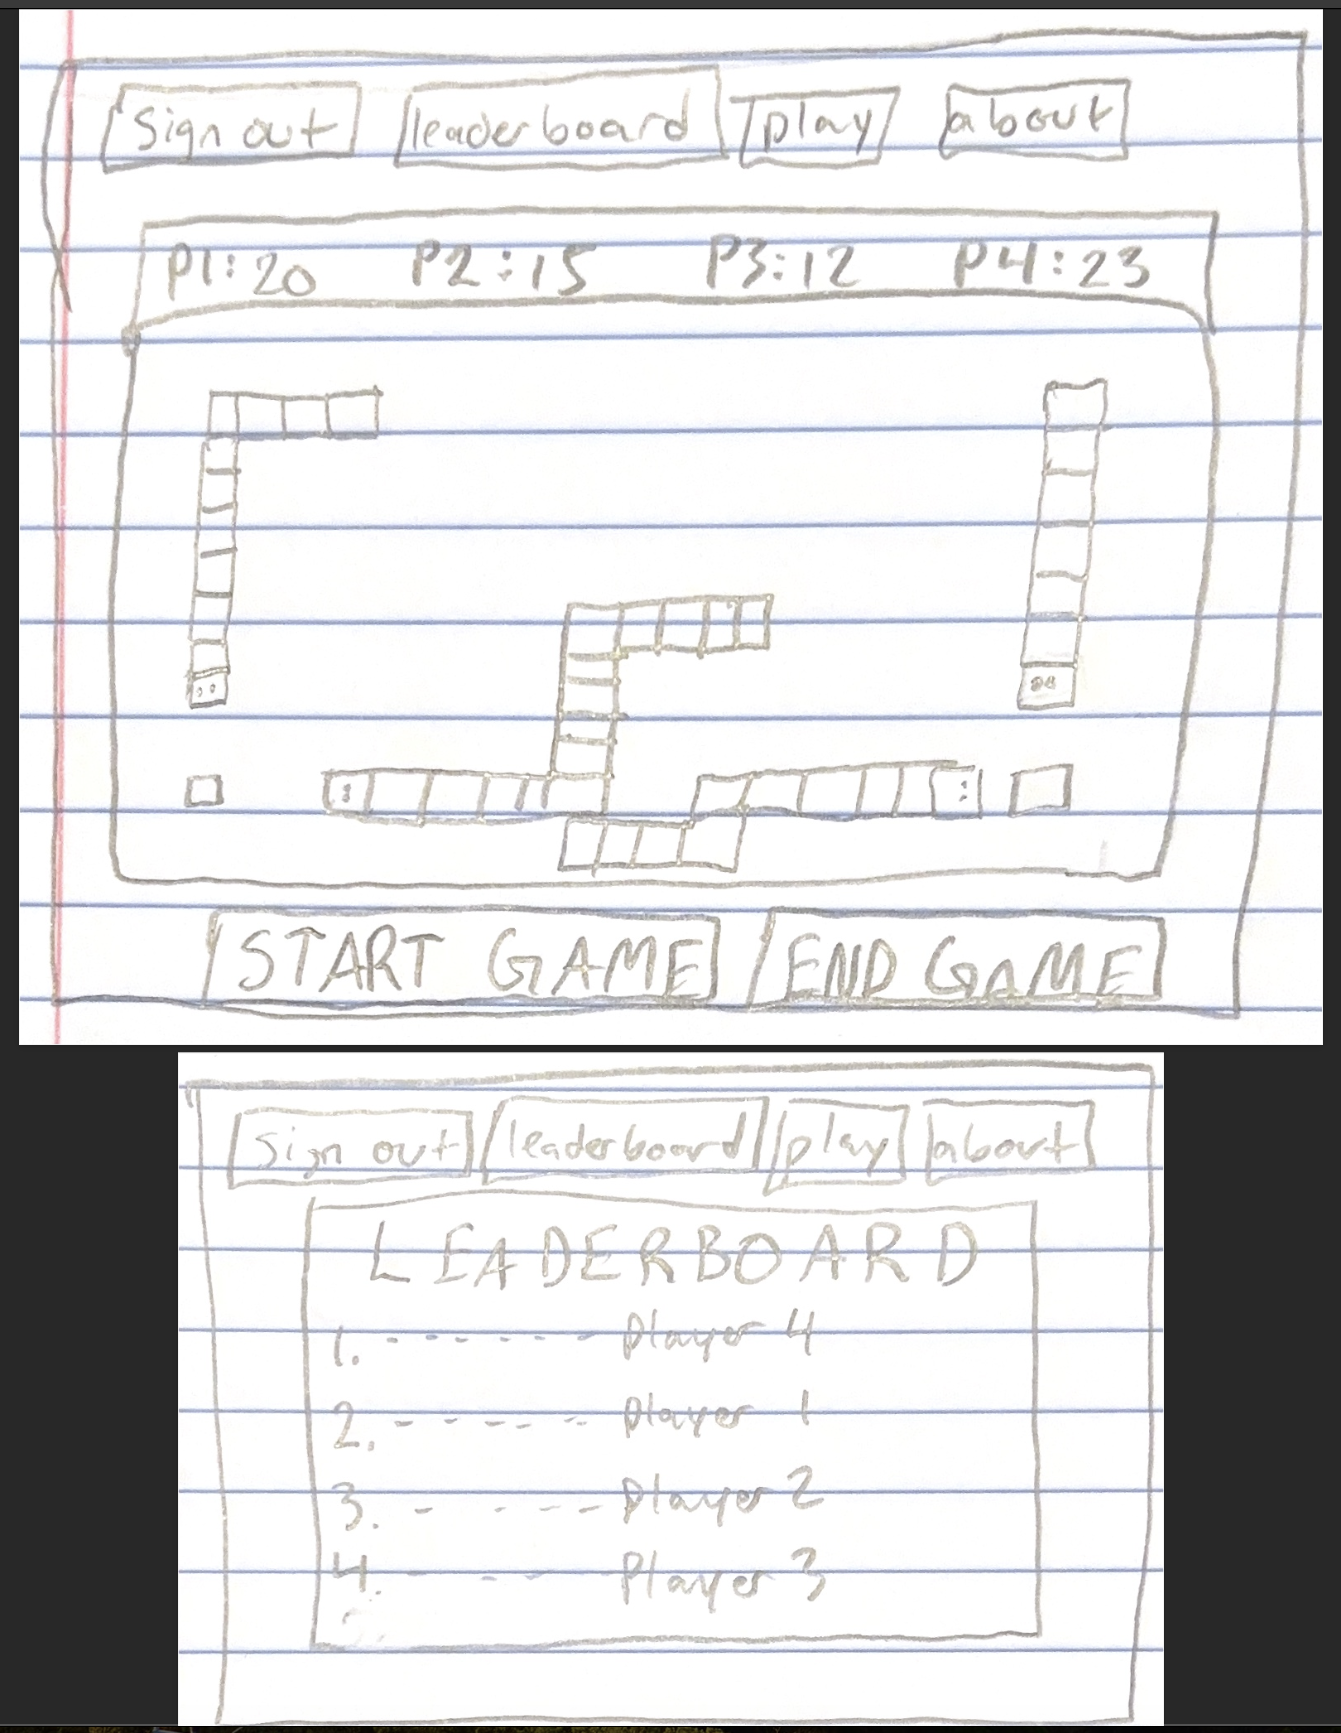 Sign out leaderboard play about
P1:20 P2:15 P3:12 P4:23
START GAME END GAME
Sign out leaderboard play about
LEADERBOARD
1. - - - - - - Player 4
2. - - - - - Player 1
3. - - - - Player 2
4. - - - Player 3